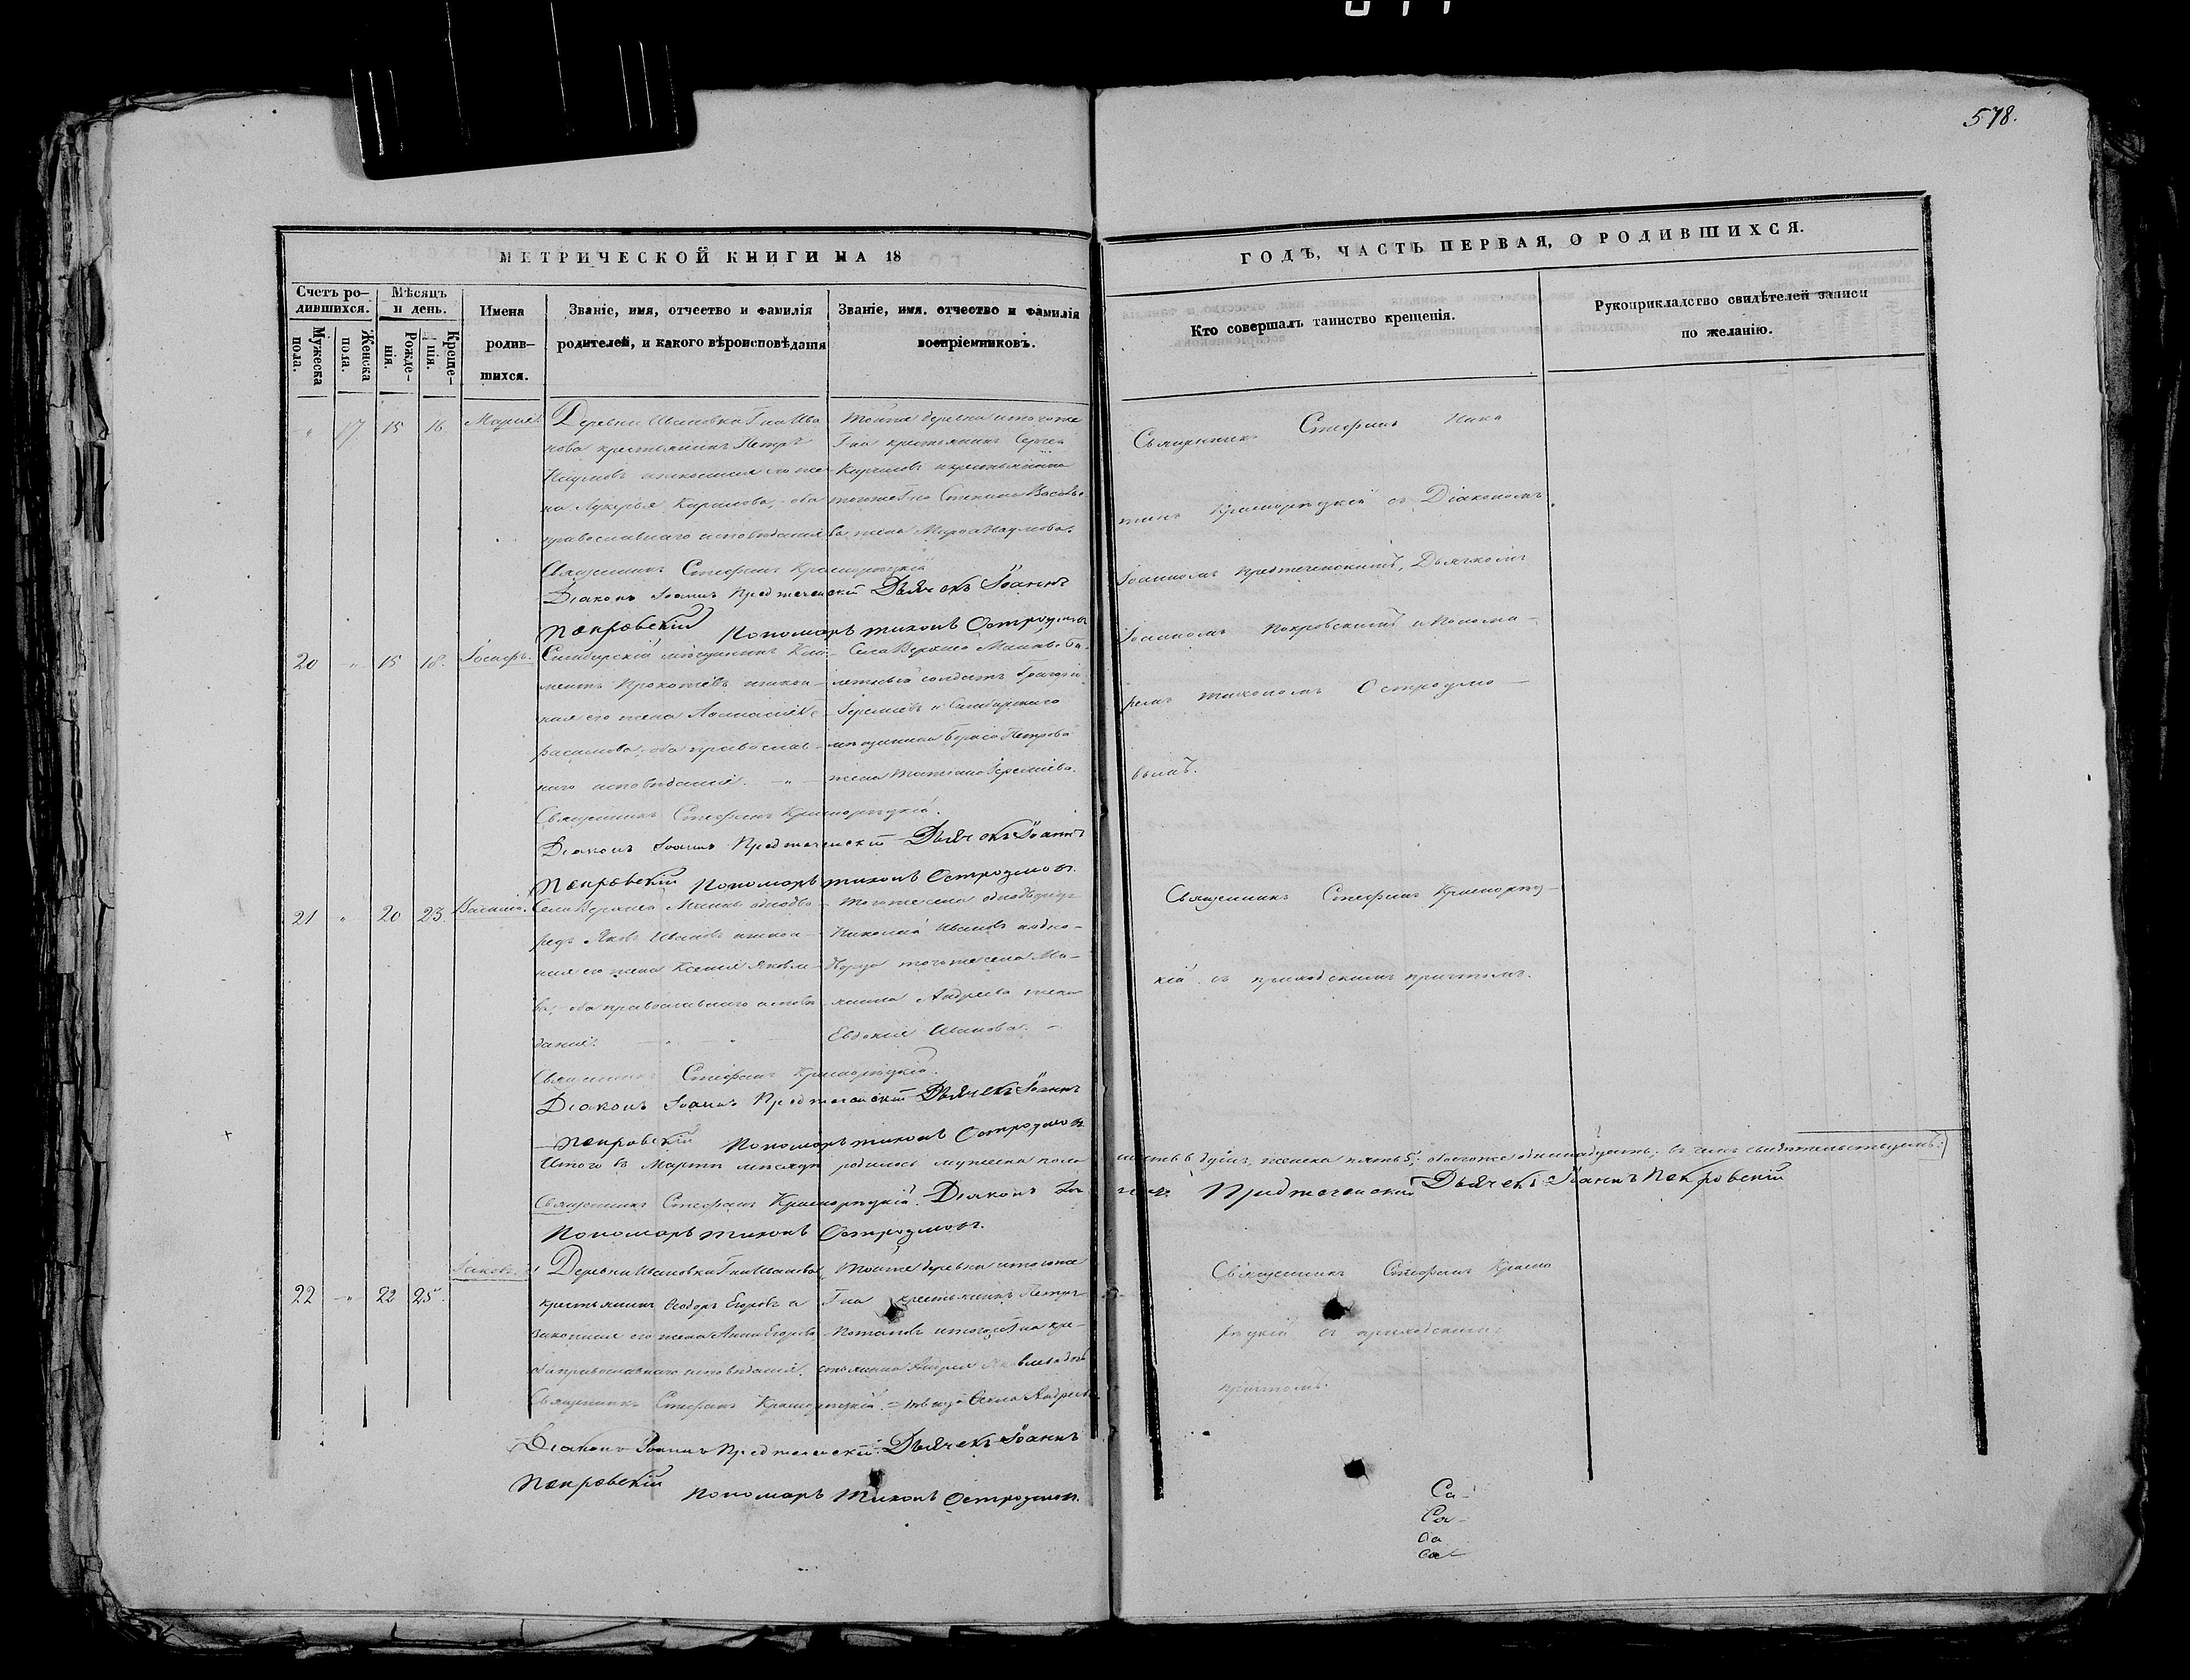 578.
МЕТРИЧЕСКОЙ КНИГИ НА 18
ГОДЪ, ЧАСТЬ ПЕРВАЯ, О РОДИВШИХСЯ.
Счетъ ро-
дившихся.
Мужеска пола.
Женска пола.
Мѣсяцъ
и день.
Рожде-
нія.
Креще-
нія.
Имена
родив-
шихся.
Званіе, имя, отчество и фамилія
родителей, и какого вѣроисповѣданія
Званіе, имя, отчество и фамилія
воспріемниковъ.
Кто совершалъ таинство крещенія.
Рукоприкладство свидѣтелей записи
по желанію.
17 15 16. Марія.
Деревни Ивановки Г на Ива
нова крестьянинъ Петръ
Наумовъ и законная его же
на Лукерья Карпова, оба
православнаго исповѣданія
Тойже деревни и тогоже
Г на крестьянинъ Сергей
тогоже Г на Степана Василье
ва жена Марѳа Наумова.
Священникъ Стефанъ
Красноруцкій съ Діакономъ
Іоанномъ Предтеченскимъ, Дьячкомъ
Іоанномъ Покровскимъ и Понома-
ремъ Тихономъ Остроумо
вымъ.
Священникъ Стефанъ
Діаконъ Іоаннъ Предтеченскій Дьячекъ Іоаннъ
Покровскій Пономарь Тихонъ Остроумовъ
20 15 18. Іосифъ.
Симбирскій мѣщанинъ Кли-
ментъ Прокопіевъ и закон-
ная его жена
оба православ-
наго исповѣданія.
Села Верхняго Мамона би-
летный солдатъ Григорій
Еремѣевъ и Симбирскаго
мѣщанина Бориса Петрова
жена Татіана Еремѣева.
Священникъ Стефанъ
Діаконъ Іоаннъ Предтеченскій Дьячекъ Іоаннъ
Покровскій Пономарь Тихонъ Остроумовъ.
21 20 23. Василій.
Села Верхняго Мамона однодво-
рецъ Яковъ Ивановъ и закон-
ная его жена Ксенія Яковле-
ва, оба православнаго исповѣ
данія.
Тогоже села однодворецъ
Николай Ивановъ и одно-
дворца тогоже села
Андреева жена
Евдокія Иванова.
Священникъ Стефанъ
кій съ приходскимъ причтомъ.
Священникъ Стефанъ
Діаконъ Іоаннъ Предтеченскій Дьячекъ Іоаннъ
Покровскій Пономарь Тихонъ Остроумовъ
Итого въ Мартѣ мѣсяцѣ родилось мужеска пола шесть 6 душъ, женска пять 5, обоегоже одинадцать; въ чемъ свидѣтельствуемъ:
Священникъ Стефанъ Діаконъ Іоаннъ Предтеченскій Дьячекъ Іоаннъ Покровскій
Пономарь Тихонъ Остроумовъ.
22 22 25. Іаковъ.
Деревни Ивановки Г на Иванова
крестьянинъ Ѳеодоръ Егоровъ и
законная его жена Анна Егорова
оба православнаго исповѣданія.
Тойже деревни и тогоже
Г на крестьянинъ Петръ
Потаповъ и тогоже Г на кре-
стьянина Андрея
Священникъ Стефанъ
съ приходскимъ
причтомъ.
Священникъ Стефанъ
Діаконъ Іоаннъ Предтеченскій Дьячекъ Іоаннъ
Покровскій Пономарь Тихонъ Остроумовъ.